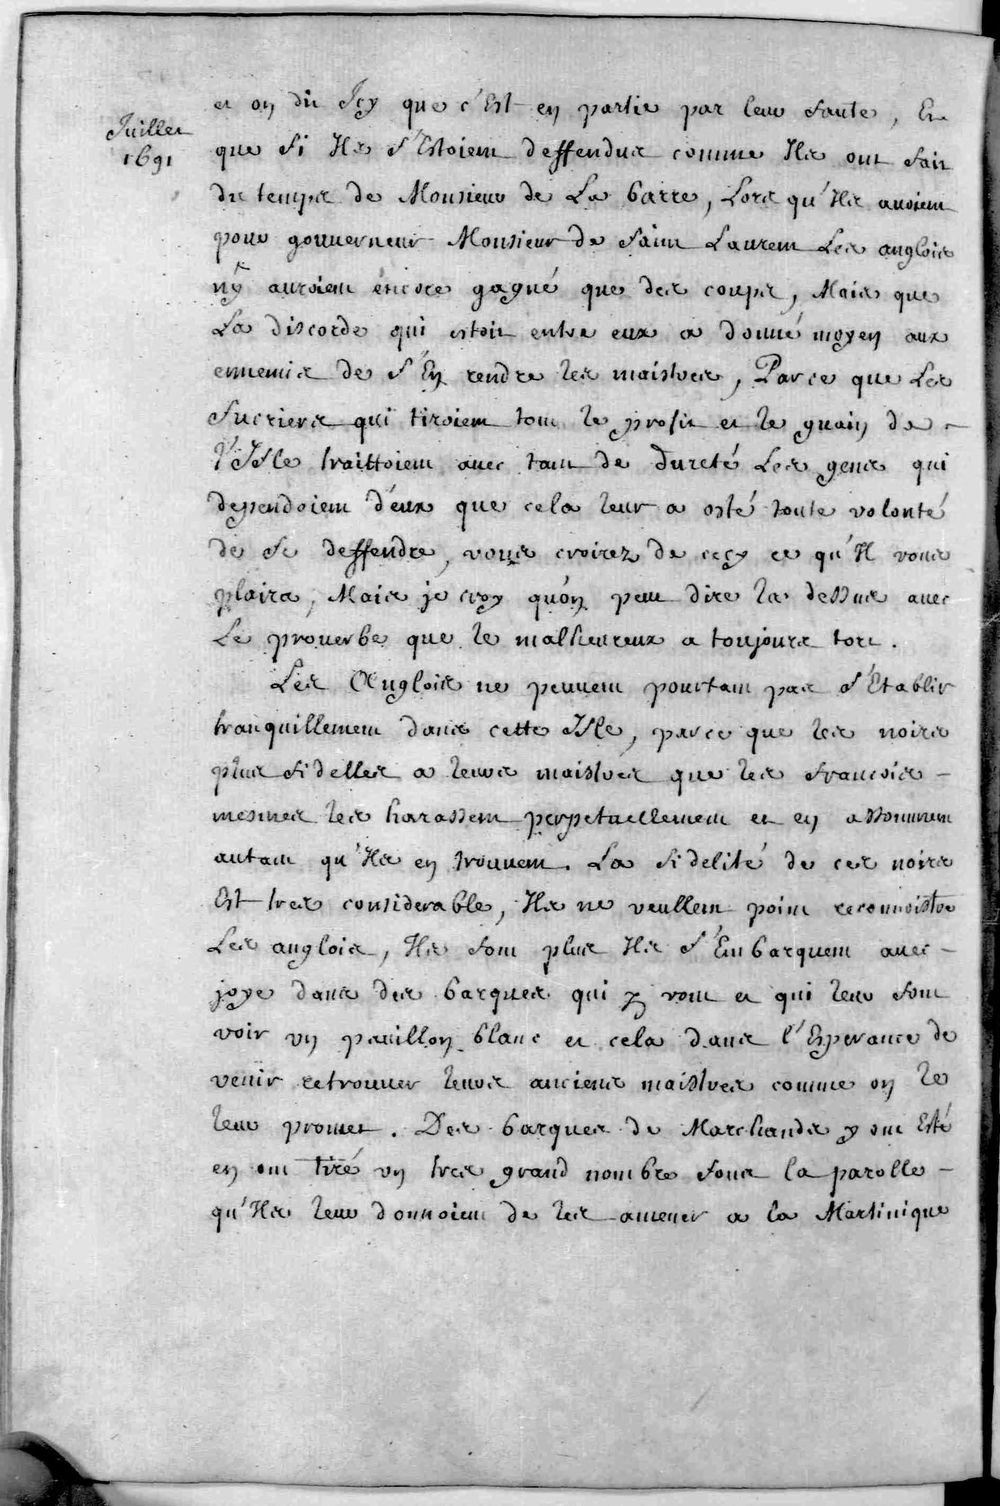 Juillet
1691
et on dit Icy que c'Est en partie par leur faute, Et
que si Ils s'Estoient deffendus comme Ils ont fait
du temps de Monsieur de La barre, Lors qu'Ils avoient
pour gouverneur Monsieur de saint Laurent Les anglois
n'y auroient encore gagné que des coups, Mais que
La discorde qui estoit entre eux a donné moyen aux
ennemis de s'En rendre les maistres, Parce que Les
sucriers qui tiroient tout le profit et le guain de
l'Isle traittoient avec tant de dureté Les gens qui
dependoient d'eux que cela leur a osté toute volonté
de se deffendre, vous croirez de cecy ce qu'Il vous
plaira, Mais je croy qu'on peut dire la dessus avec
Le proverbe que le malheureux a toujours tort.
Les Anglois ne peuvent pourtant pas s'Etablir
tranquillement dans cette Isle, parce que les noirs
plus fidelles a leurs maistres que les francois
mesmes les harassent perpetuellement et en assomment
autant qu'Ils en trouvent. La fidelité de ces noirs
Est tres considerable, Ils ne veullent point reconnoistre
Les anglois, Ils font plus Ils s'Embarquent avec
joye dans des barques qui y vont et qui leur font
voir un pavillon blanc et cela dans l'Esperance de
venir retrouver leurs anciens maistres comme on le
leur promet. Des barques de Marchands y ont Esté
en ont tiré un tres grand nombre sous la parolle
qu'Ils leur donnoient de les amener a la Martinique